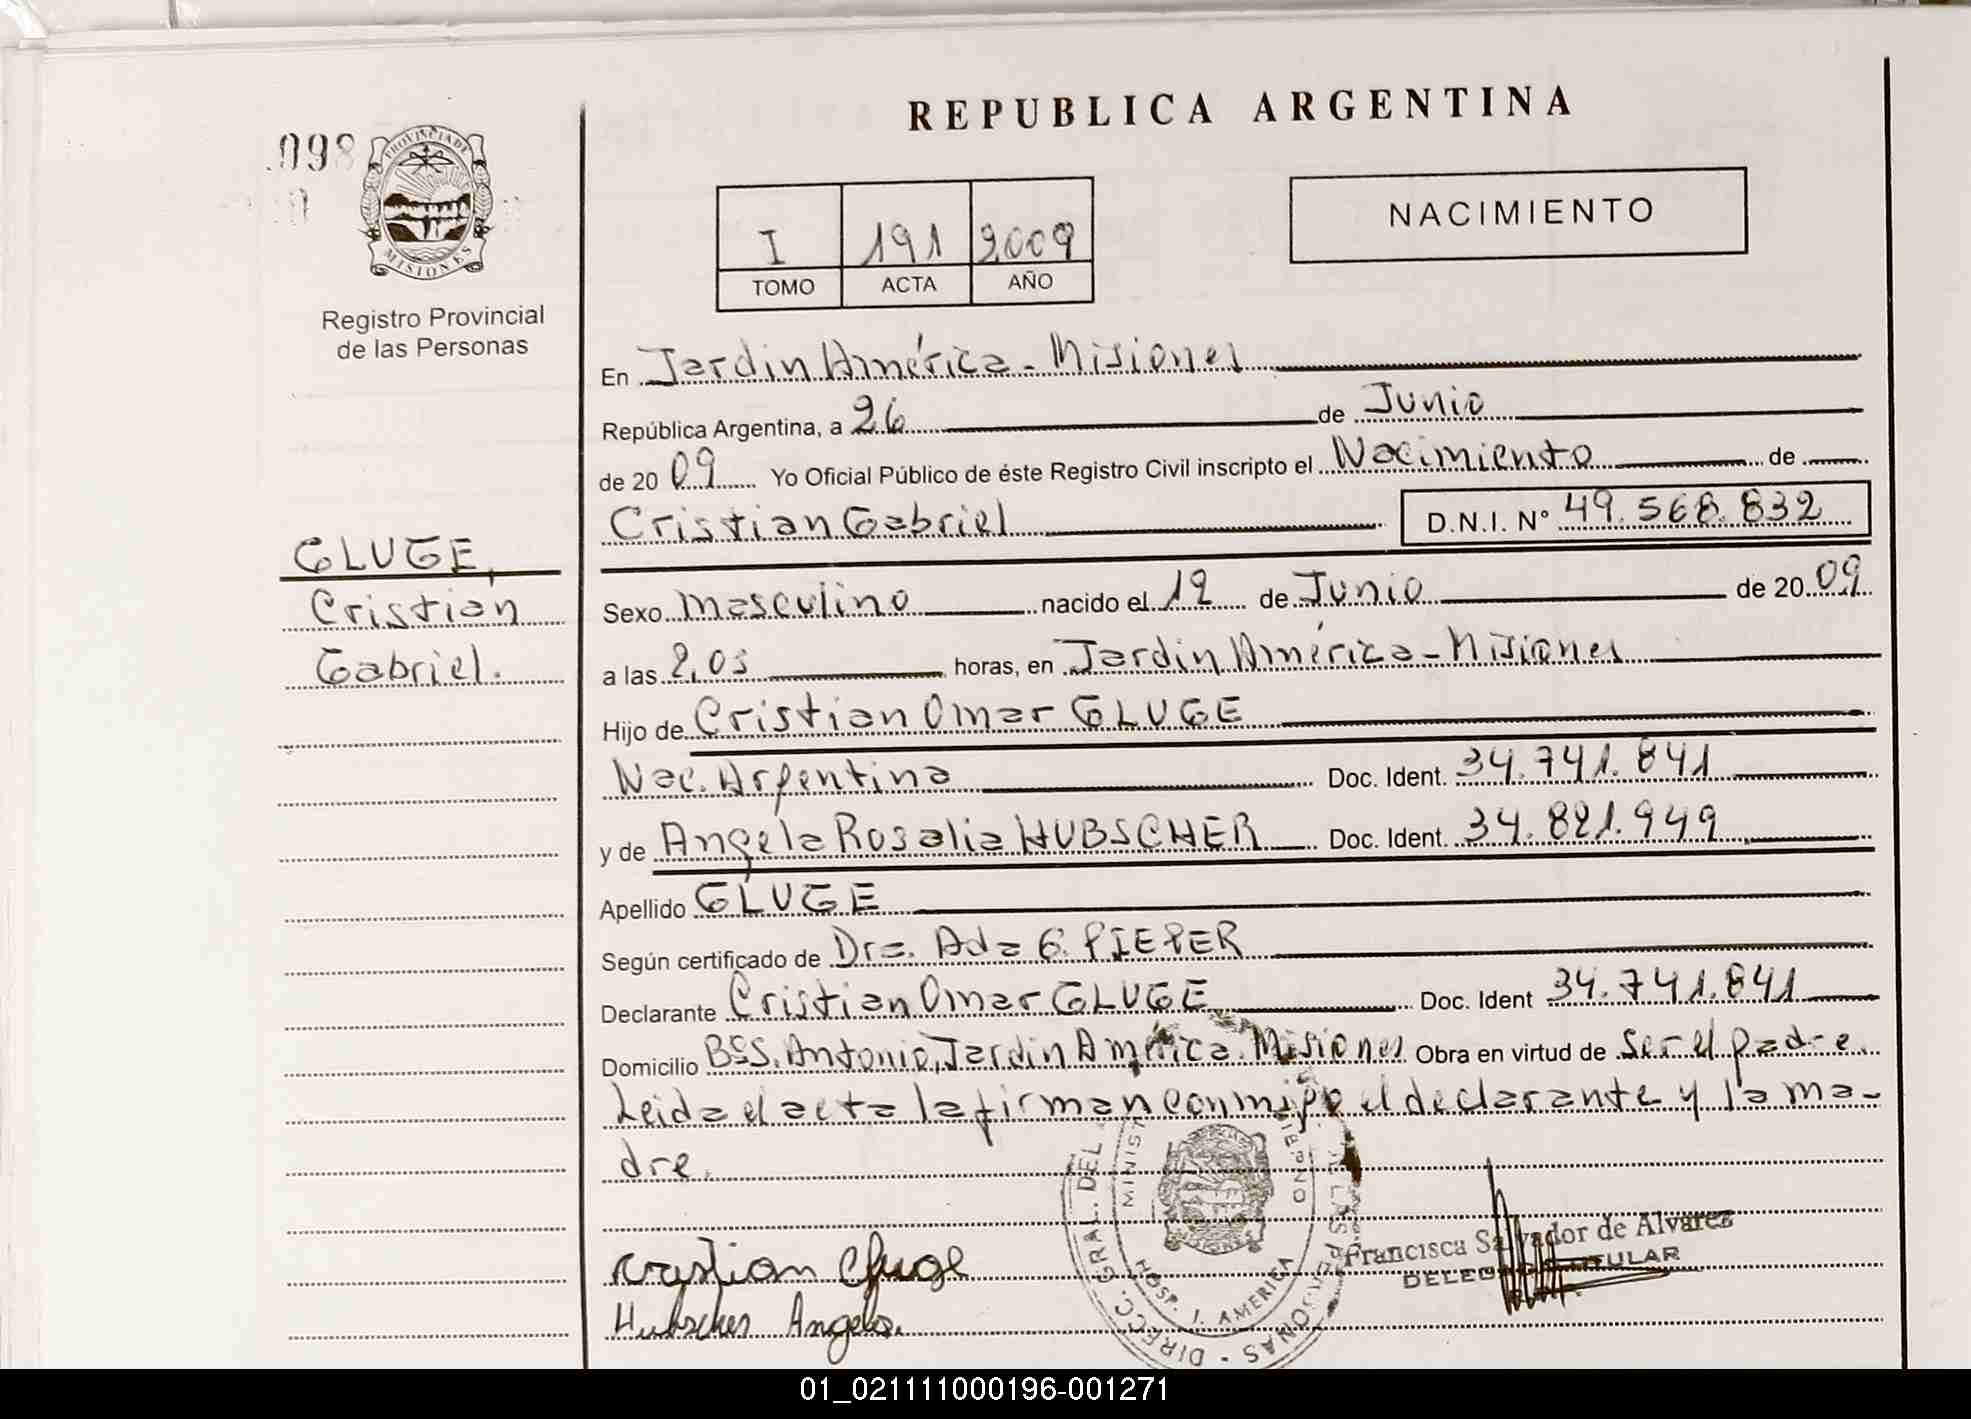 REPUBLICA ARGENTINA
098
PROVINCIA DE MISIONES
Registro Provincial
de las Personas
I 191 2009
TOMO ACTA AÑO
NACIMIENTO
En Jardín América - Misiones
República Argentina, a 26 de Junio
de 2009 Yo Oficial Público de éste Registro Civil inscripto el Nacimiento de
Cristian Gabriel D.N.I. N° 49.568.832
GLUGE,
Cristian
Gabriel.
Sexo masculino nacido el 12 de Junio de 2009
a las 2,05 horas, en Jardín América - Misiones
Hijo de Cristian Omar GLUGE
Nac. Argentina Doc. Ident. 34.741.841
y de Angela Rosalia HUBSCHER Doc. Ident. 34.821.949
Apellido GLUGE
Según certificado de Dra. Ada G. PIEPER
Declarante Cristian Omar GLUGE Doc. Ident 34.741.841
Domicilio B°S. Antonio, Jardín América. Misiones Obra en virtud de ser el padre.
Leida el acta la firman conmigo el declarante y la ma-
dre.
Francisca Salvador de Alvarez
TITULAR
Cristian Gluge
Hubscher Angela.
DIRECC. GRAL. DEL
HOSP. J. AMERICA
01_021111000196-001271